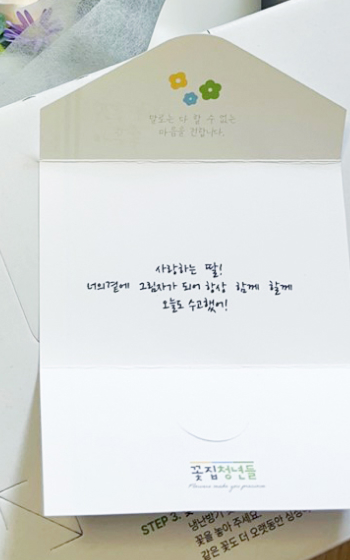 말로는 다 할 수 없는
마음을 전합니다.
사랑하는 딸!
너의곁에 그림자가 되어 항상 함께 할께
오늘도 수고했어!
꽃집청년들
Flowers make you precious
STEP 3.
냉난방기
꽃을 놓아 주세요.
같은 꽃도 더 오랫동안 싱싱